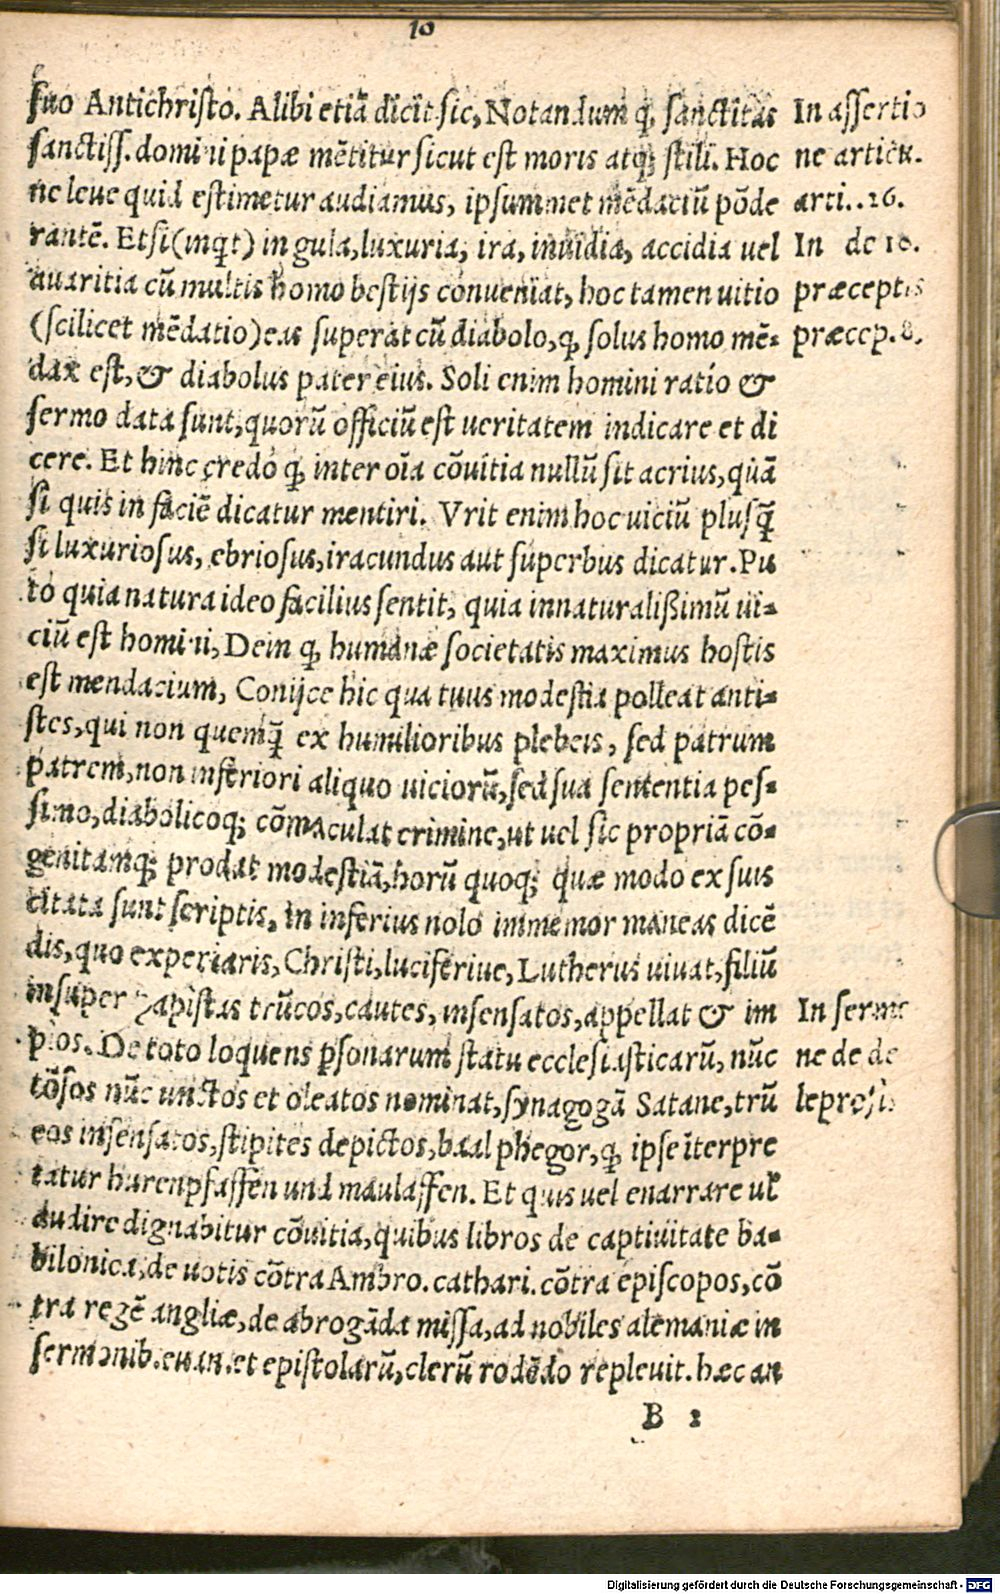 10
suo Antichristo. Alibi etiã dicit sic, Notandum ꝙ sanctitas
sanctiss. domini papæ mẽtitur sicut est moris atqꝫ stili. Hoc
ne leue quid estimetur audiamus, ipsummet mẽdaciũ põde
rantẽ. Etsi (inqt) in gula, luxuria, ira, inuidia, accidia uel
auaritia cũ multis homo bestijs conueniat, hoc tamen uitio
(scilicet mẽdatio) eas superat cũ diabolo, ꝙ solus homo mẽ-
dax est, & diabolus pater eius. Soli enim homini ratio &
sermo data sunt, quorũ officiũ est ueritatem indicare et di
cere. Et hinc credo ꝙ inter oĩa cõuitia nullũ sit acrius, quã
si quis in faciẽ dicatur mentiri. Vrit enim hoc uiciũ plusq̃
si luxuriosus, ebriosus, iracundus aut superbus dicatur. Pu
to quia natura ideo facilius sentit, quia innaturalißimũ ui-
ciũ est homini, Dein ꝙ humanæ societatis maximus hostis
est mendacium, Conijce hic qua tuus modestia polleat anti-
stes, qui non quemq̃ ex humilioribus plebeis, sed patrum
patrem, non inferiori aliquo uiciorũ, sed sua sententia pes-
simo, diabolicoqꝫ cõmaculat crimine, ut uel sic propriã cõ-
genitamqꝫ prodat modestiã, horũ quoqꝫ quæ modo ex suis
citata sunt scriptis, in inferius nolo immemor maneas dicẽ
dis, quo experiaris, Christi, luciferiue, Lutherus uiuat, filiũ
insuper Papistas trũcos, cautes, insensatos, appellat & im
pios. De toto loquens ꝑsonarum statu ecclesiasticarũ, nũc
tõsos nũc unctos et oleatos nominat, synagogã Satane, trũ
cos insensatos, stipites depictos, baal phegor, ꝙ ipse ĩterpre
tatur hurenpfaffen und maulaffen. Et quis uel enarrare ul̃
audire dignabitur cõuitia, quibus libros de captiuitate ba-
bilonica, de uotis cõtra Ambro. cathari. cõtra episcopos, cõ
tra regẽ angliæ, de abrogãda missa, ad nobiles alemaniæ in
sermonib. euan. et epistolarũ, clerũ rodẽdo repleuit. hæc an
B 2
In assertio
ne artick.
arti..26.
In de 10.
præceptis
præcep. 8.
In sermo
ne de de
leprosis
Digitalisierung gefördert durch die Deutsche Forschungsgemeinschaft - DFG